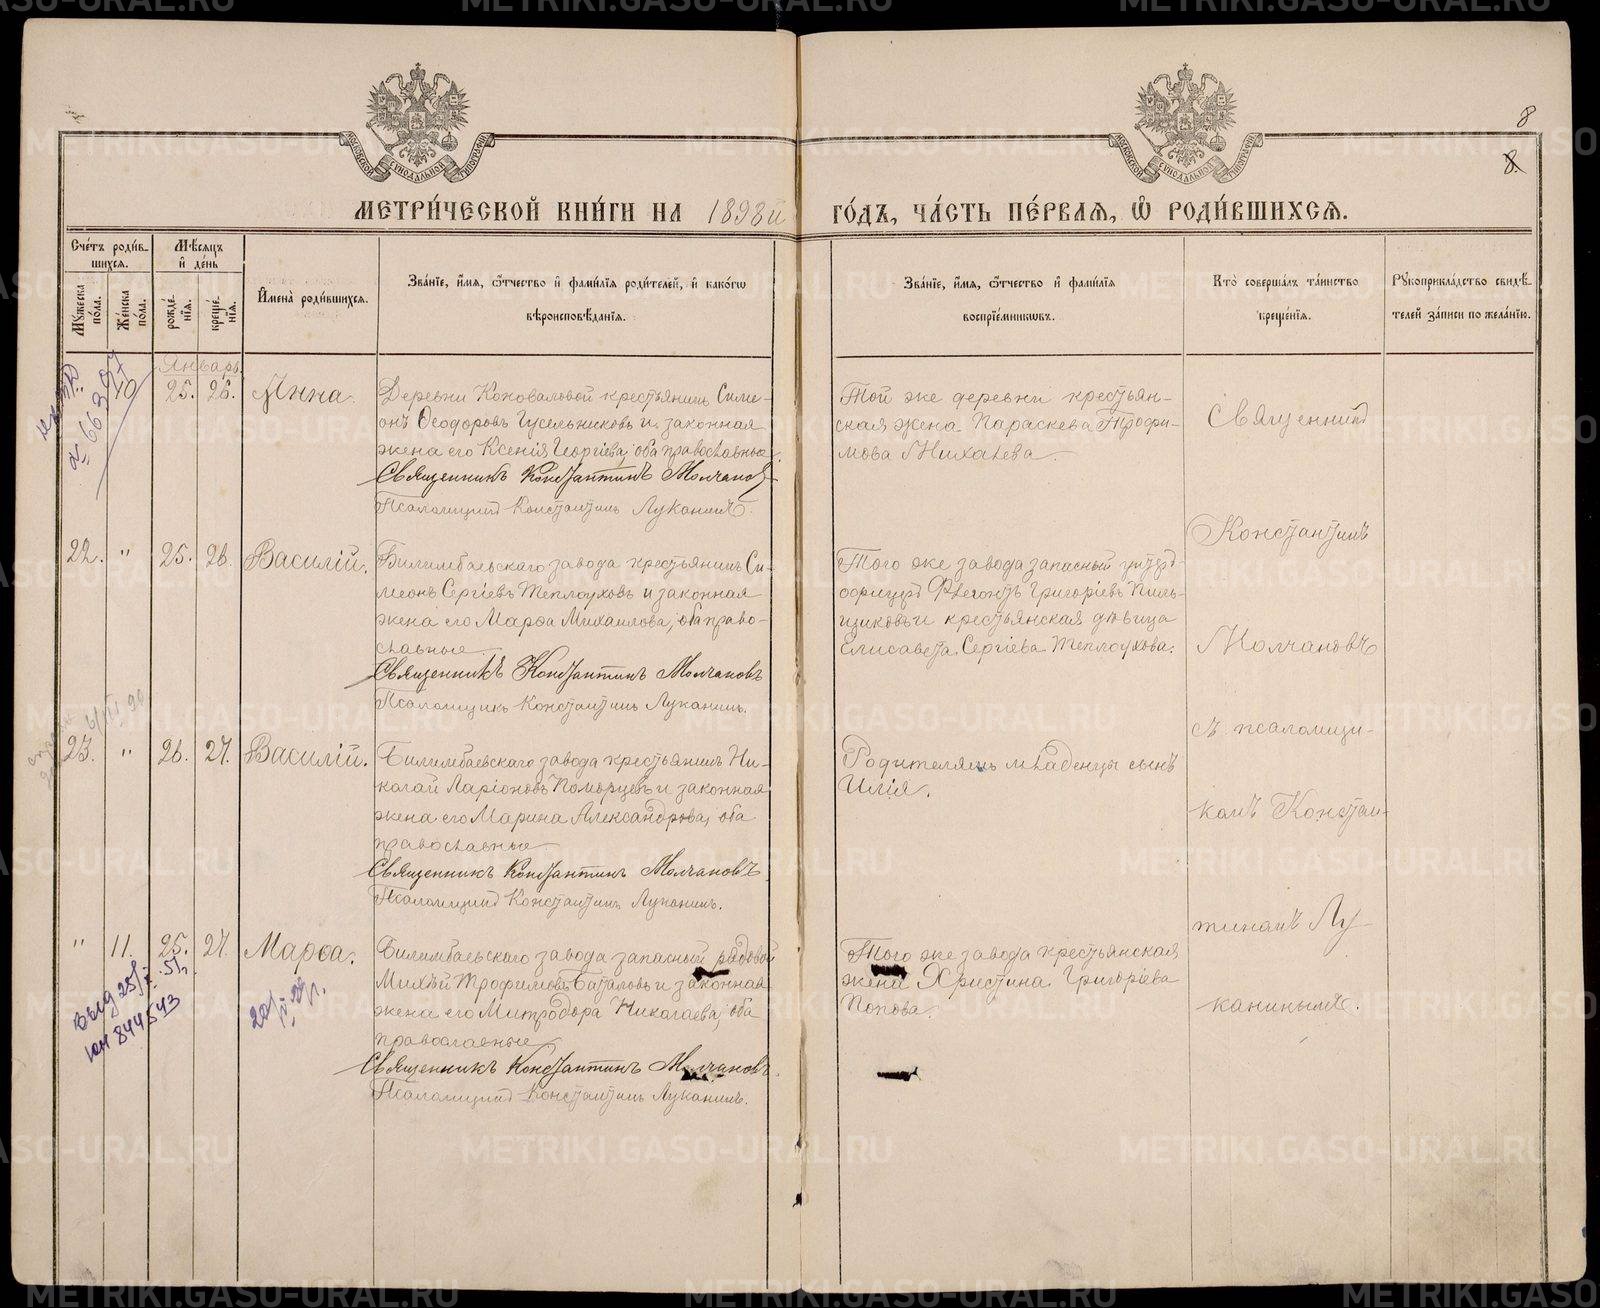 8
8.
МЕТРИ́ЧЕСКОЙ КНИ́ГИ НА 1898й ГО́ДЪ, ЧА́СТЬ ПЕ́РВАЯ, Ѡ РОДИ́ВШИХСЯ.
Сче́тъ роди́в-
шихся.
Му́жеска по́ла.
Же́нска по́ла.
Мѣ́сяцъ
и҆ де́нь
рожде́нїя.
креще́нїя.
И҆мена̀ роди́вшихся.
Зва́нїе, и҆́мя, ѻ҆́тчество и҆ фами́лїя роди́телей, и҆ како́гѡ
вѣроисповѣ́данїя.
Зва́нїе, и҆́мя, ѻ҆́тчество и҆ фами́лїя
воспрїе́мникѡвъ.
Кто̀ соверша́лъ та́инство
креще́нїя.
Рꙋкоприкла́дство свидѣ́-
телей за́писи по жела́нїю.
Январь
10 25. 26. Анна.
Деревни Коноваловой крестьянинъ Симе-
онъ Ѳеодоровъ Гусельниковъ и законная
жена его Ксенія Георгіева, оба православные.
Священникъ Константинъ Молчановъ
Псаломщикъ Константинъ Луканинъ.
Той же деревни крестьян-
ская жена Параскева Трофи-
мова Михалева.
22. " 25. 26. Василій.
Билимбаевскаго завода крестьянинъ Си-
меонъ Сергіевъ Теплоуховъ и законная
жена его Марѳа Михаилова, оба право-
славные.
Священникъ Константинъ Молчановъ
Псаломщикъ Константинъ Луканинъ.
Того же завода запасный унтеръ-
офицеръ Флегонтъ Григоріевъ Пиль-
щиковъ и крестьянская дѣвица
Елисавета Сергіева Теплоухова.
23. " 26. 27. Василій.
Билимбаевскаго завода крестьянинъ Ни-
колай Ларіоновъ Поморцевъ и законная
жена его Марина Александрова, оба
православные.
Священникъ Константинъ Молчановъ
Псаломщикъ Константинъ Луканинъ.
Родителямъ младенца сынъ
Илія.
" 11. 25. 27. Марѳа.
Билимбаевскаго завода запасный рядовой
Михѣй Трофимовъ Баталовъ и законная
жена его Митродора Николаева, оба
православные
Священникъ Константинъ Молчановъ.
Псаломщикъ Константинъ Луканинъ.
Того же завода крестьянская
жена Христина Григоріева
Попова.
Священникъ
Константинъ
Молчановъ
съ псаломщи-
комъ Констан-
тиномъ Лу-
канинымъ.
844543
METRIKI.GASO-URAL.RU